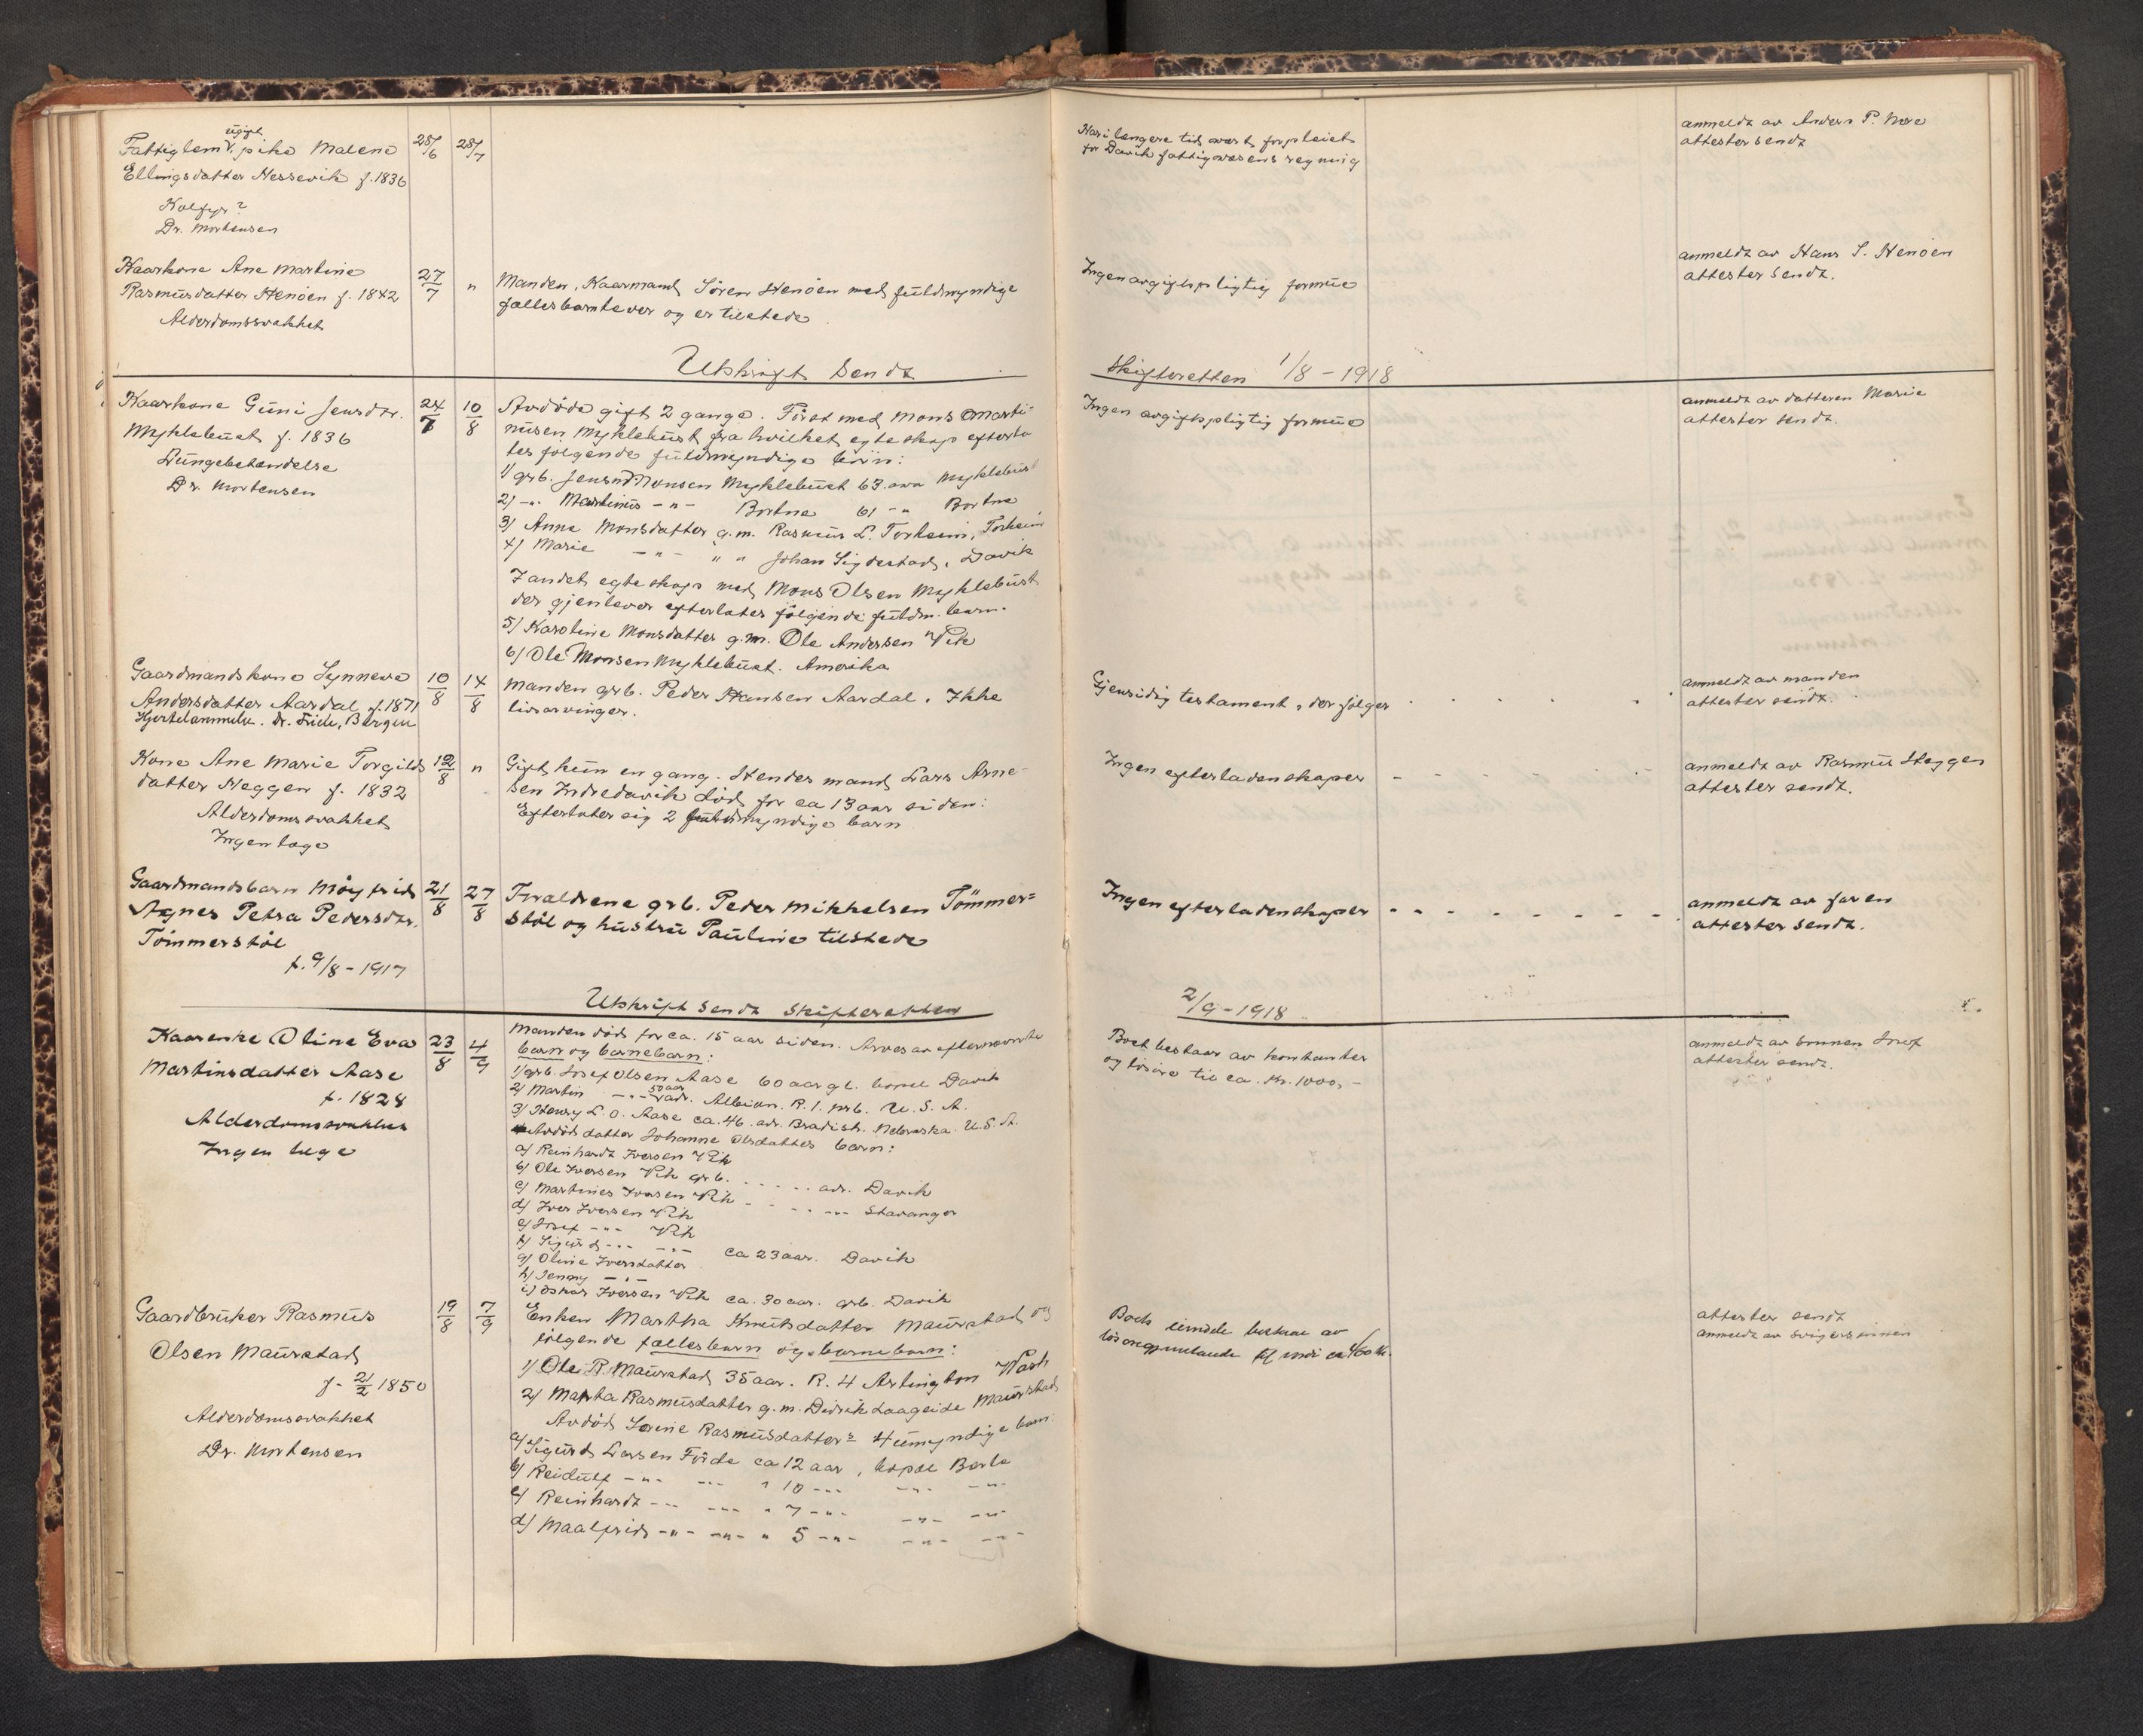 ugift
Fattiglem v. pike Malene 28/6 28/7
Ellingsdatter Nessevik f. 1836
?
Dr. Mortensen
Har i længere tid været forpleiet
for Davik fattigvæsens regning
anmeldt av Anders P. Nore
attester sendt
Kaarkone Ane Martine 27/7 "
Rasmusdatter Henöen f. 1842
Alderdomssvakhet
Manden, Kaarmand Sören Henöen med fuldmyndige
fællesbarn lever og er tilstede
Ingen avgiftspligtig formue
anmeldt av Hans S. Henöen
attester sendt.
Utskrift sendt Skifteretten 1/8 - 1918
Kaarkone Guni Jensdtr. 24/7 10/8
Myklebust f. 1836
Lungebetændelse
Dr. Mortensen
Avdöde gift 2 gange. Först med Mons Marti-
nusen Myklebust fra hvilket egteskap efterla-
tes følgende fuldmyndige börn:
1) grb. Jens Monsen Myklebust 63 aar Myklebust
2) -"- Martinus -"- Bortne 61 -"- Bortne
3) Anne Monsdatter g.m. Rasmus L. Torheim, Torheim
4) Marie -"- " " Johan Sigdestad, Davik
I andet egteskap med Mons Olsen Myklebust
der gjenlever efterlates følgende fuldm. barn.
5) Karoline Monsdatter g.m. Ole Andersen Vik
6) Ole Monsen Myklebust. Amerika
Ingen avgiftspligtig formue
anmeldt av datteren Marie
attester sendt.
Gaardmandskone Synneve 10/8 14/8
Andersdatter Aardal f. 1871
Hjertelammelse. Dr. Bergen
Manden grb. Peder Hansen Aardal. Ikke
livsarvinger.
Gjensidig testament, der følger
anmeldt av manden
attester sendt.
Kone Ane Marie Torgils 12/8 "
datter Heggen f. 1832
Alderdomssvakhet
Ingen læge
Gift kun en gang. Hendes mand Lars Arne-
sen Indredavik död for ca 13 aar siden:
Efterlater sig 2 fuldmyndige barn
Ingen efterladenskaper
anmeldt av Rasmus Heggen
attester sendt.
Gaardmandsbarn Möyfrid 21/8 27/8
Agnes Petra Pedersdtr.
Tömmerstöl
f. 9/8 - 1917
Forældrene grb. Peder Mikkelsen Tömmer=
stöl og hustru Pauline tilstede
Ingen efterladenskaper
anmeldt av faren
attester sendt.
Utskrift sendt Skifteretten 2/9 - 1918
Kaarenke Oline Eva 23/8 4/9
Martinsdatter Aase
f. 1828
Alderdomssvakhet
Ingen læge
Manden död for ca. 15 aar siden. Arves av efternævnte
barn og barnebarn:
1) grb. Josef Olsen Aase 60 aar gl. bopæl Davik
50 aar
2) Martin -"- adr. Albion. R. 1. U. S. A.
3) Henry L. O. Aase ca. 46. adr. Bradish. Nebraska. U.S.A.
Avdöd datter Johanne Olsdatters barn:
a) Reinhardt Iversen Vik
b) Ole Iversen Vik grb. . . . . . adr. Davik
c) Martines Iversen Vik - - - - Stavanger
d) Iver Iversen Vik
e) Josef -"- Vik
f) Sigurd -"- -"- ca 23 aar. Davik
g) Oline Iversdatter
h) Jenny -"-
i) Oskar Iversen Vik ca. 30 aar. grb. Davik
Boet bestaar av kontanter
og lösöre til ca. Kr. 1000,-
anmeldt av sönnen Josef
attester sendt.
Gaardbruker Rasmus 19/8 7/9
Olsen Maurstad
f. 21/2 1850
Alderdomssvakhet
Dr. Mortensen
Enken Martha Knutsdatter Maurstad og
følgende fællesbarn og barnebarn:
1) Ole R. Maurstad 35 aar. R. 4 Arlington Wash
2) Marta Rasmusdatter g.m. Didrik Laageide Maurstad
Avdöd Sörine Rasmusdatters 4 umyndige barn:
a) Sigurd Larsen Förde ca 12 aar, bopæl Barlo
b) Reidulf -"- -"- " 10 -"- -"- -"-
c) Reinhardt -"- -"- " 7 -"- -"- -"-
d) Maalfrid -"- -"- " 5 -"- -"- -"-
Boets eiendele bestaar av
lösöre til værdi ca 460 Kr.
attester sendt
anmeldt av svigersönnen